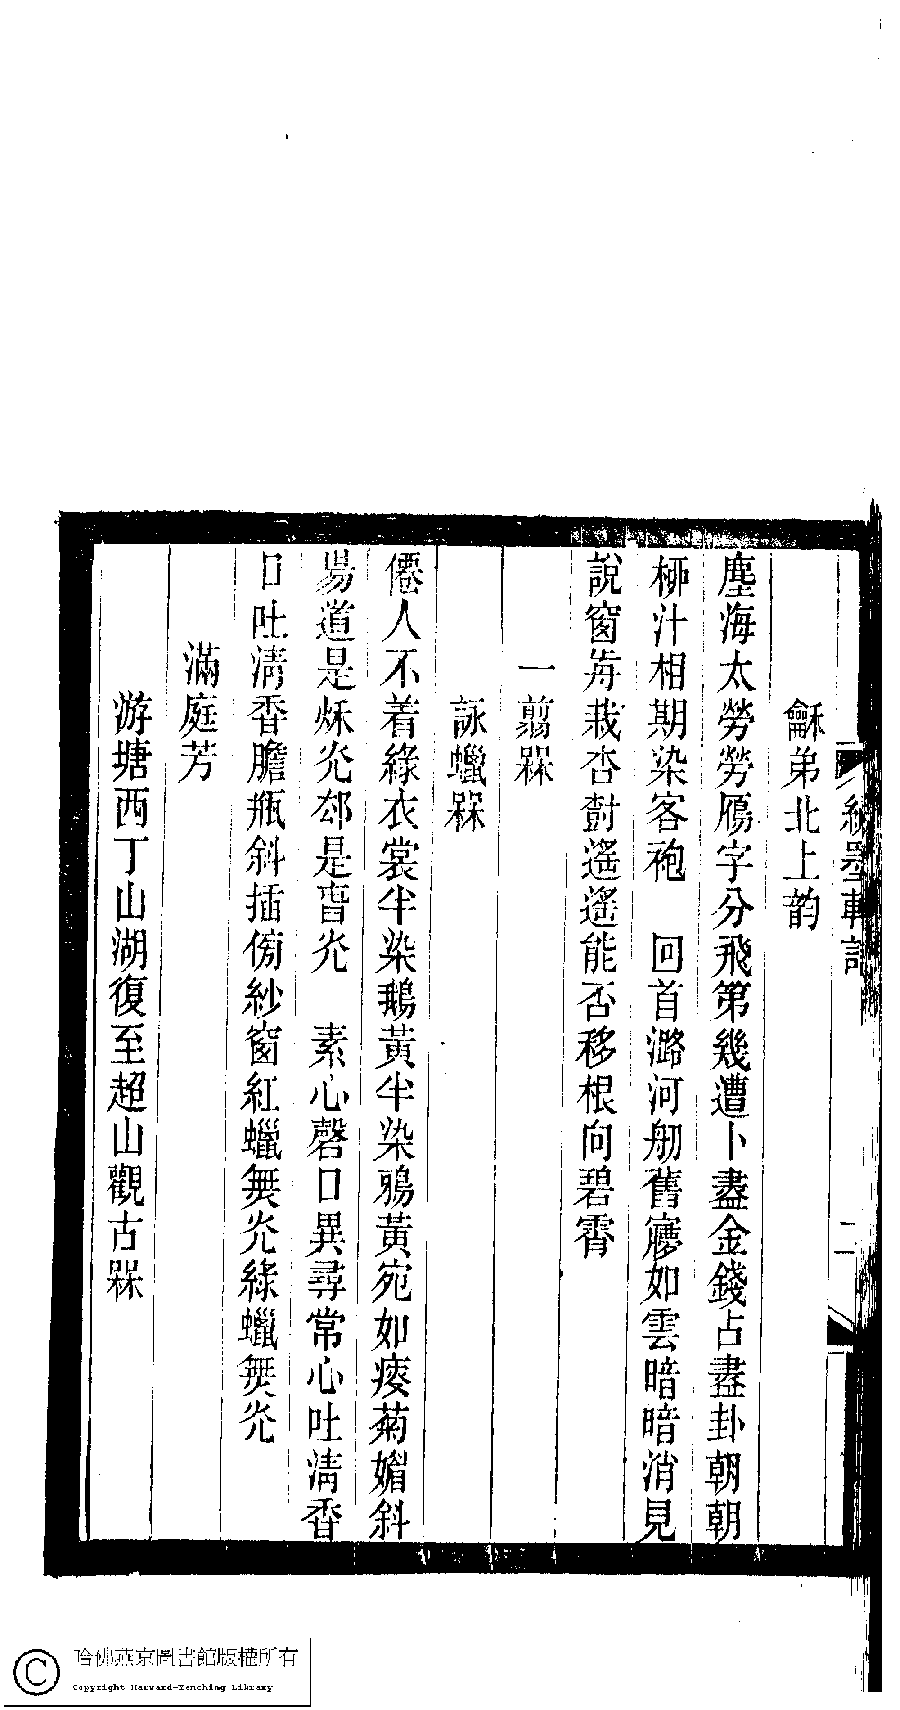 龢弟北上韵
塵海太勞勞鴈字分飛第幾遭卜盡金錢占盡卦朝朝
桺汁相期染客袍　回首潞河舠舊㝱如雲暗暗消見
說窗歬栽杏尌遙遙能否移根向碧霄
一翦槑
詠蠟槑
僊人不着綠衣裳半染鵝黃半染鴉黃宛如痩菊媚斜
昜道是烁灮郄是旾灮　素心磬口異尋常心吐清香
口吐清香膽瓶斜插傍紗窗紅蠟無灮綠蠟無灮
滿庭芳
游塘西丁山湖復至超山觀古槑
二
哈佛燕京圖書館版權所有
Copyright Harvard-Yenching Library